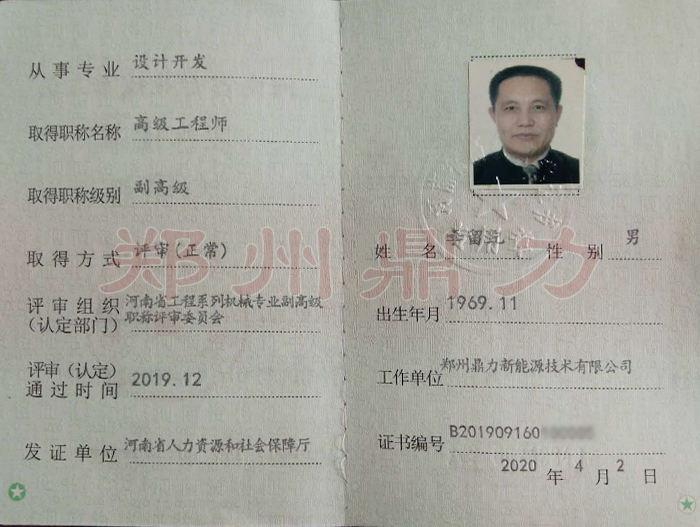 从事专业 设计开发
取得职称名称 高级工程师
取得职称级别 副高级
取得方式 评审(正常)
评审组织 河南省工程系列机械专业副高级
(认定部门) 职称评审委员会
评审(认定)
通过时间 2019.12
发证单位 河南省人力资源和社会保障厅
姓名 李留 性别 男
出生年月 1969.11
工作单位 郑州鼎力新能源技术有限公司
证书编号 B201909160
2020 年 4 月 2 日
郑州鼎力